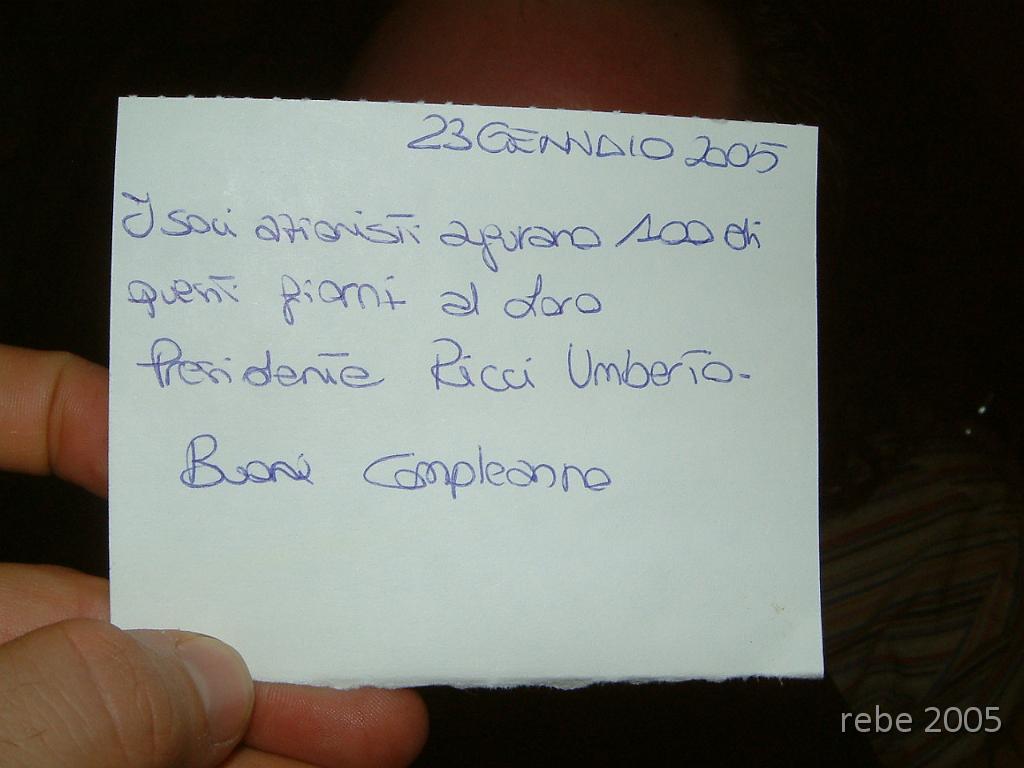 23 GENNAIO 2005
I soci azionisti agurano 100 di
questi giorni al loro
Presidente Ricci Umberto.
Buon Compleanno
rebe 2005